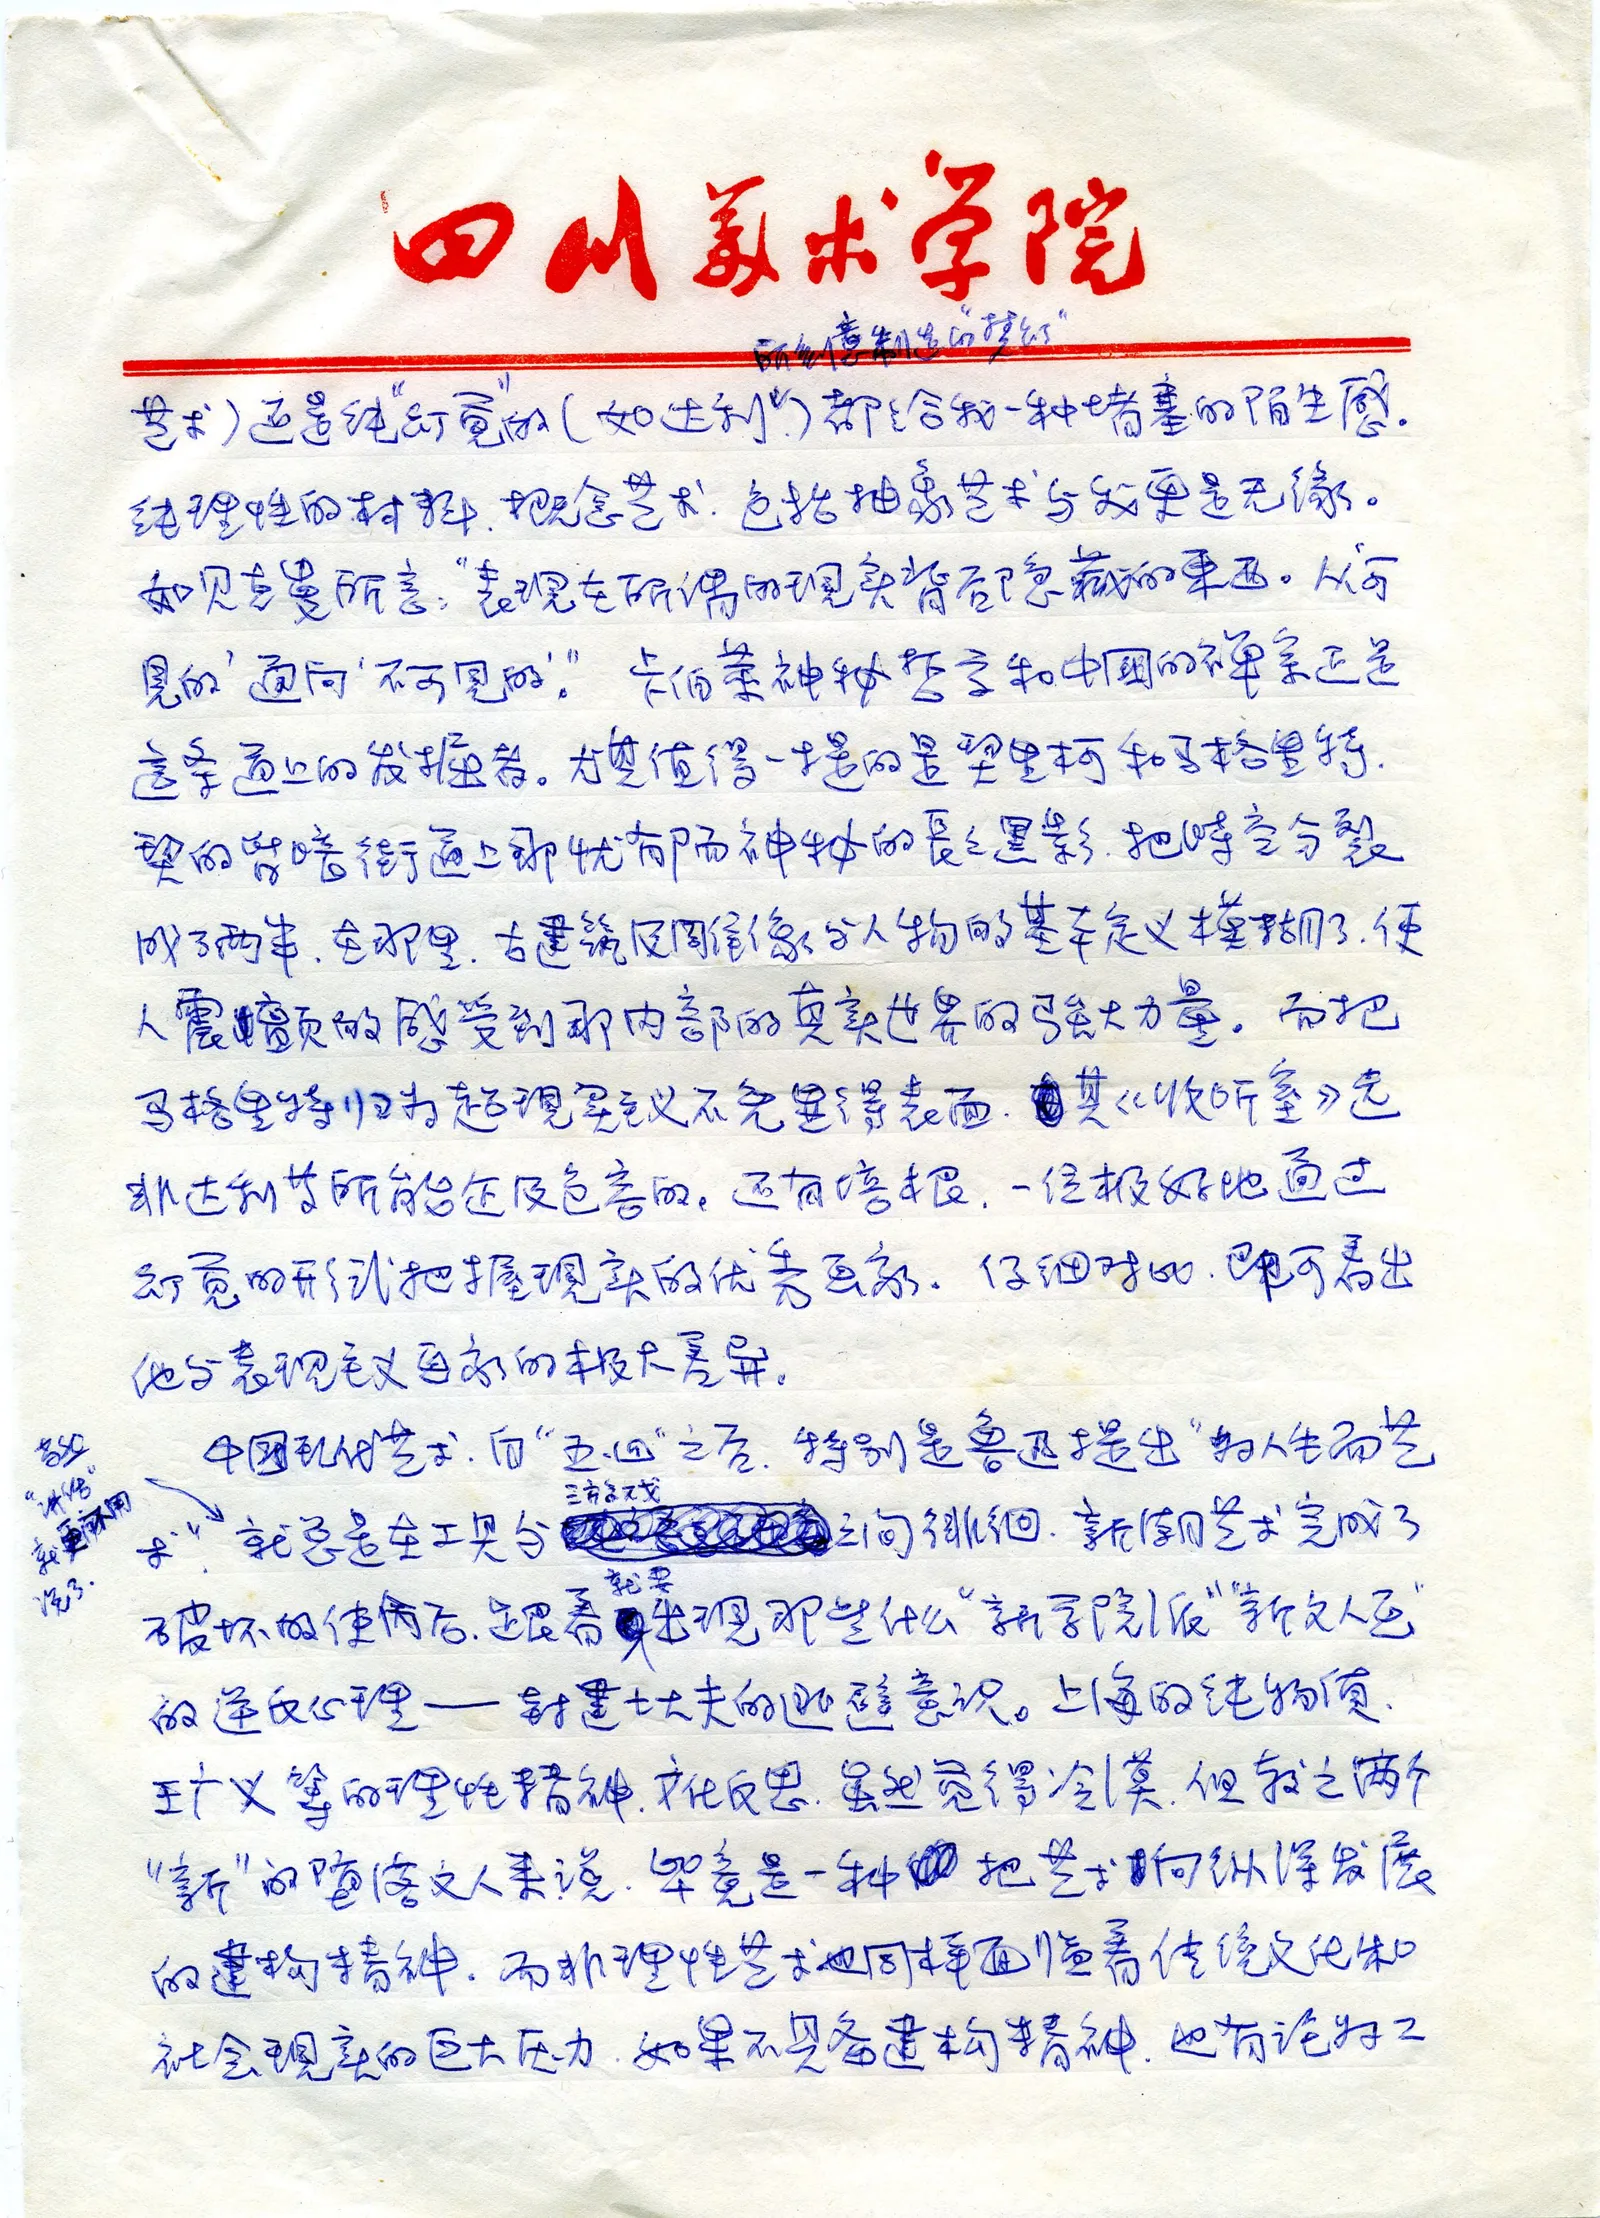 四川美术学院
所刻意制造的"梦幻"
艺术）还是纯"幻觉"的（如达利）都给我一种堵塞的陌生感。
纯理性的材料、概念艺术、包括抽象艺术与我更是无缘。
如贝克曼所言："表现在所谓的现实背后隐藏的东西。从'可
见的'通向'不可见的'。"卡伯莱神秘哲学和中国的禅宗正是
这条道上的发掘者。尤其值得一提的是契里柯和马格里特，
契的背暗街道上那忧郁而神秘的長長黑影，把時空分裂
成了两半，在那里，古建筑及周围雕像与人物的基本定义模糊了，使
人震颤的感受到那内部的真实世界的强大力量。而把
马格里特归为超现实主义不免显得表面，其《收听室》远
非达利等所能企及色害的。还有培根，一位极好地通过
幻觉的形式把握现实的优秀画家。仔细对比，即可看出
他与表现主义画家的极大差异。
中国现代艺术，自"五.四"之后，特别是鲁迅提出"为人生而艺
"讲话"
就更不用
说了.
游戏
术"，就总是在工具与之间徘徊，新潮艺术完成了
就要
破坏的使命后，跟着出现那些什么"新学院派""新文人画"
的逆反心理——封建士大夫的退避意识。上海的纯物质，
王广义等的理性精神，文化反思，虽然觉得冷漠，但较之两个
"新"的堕落文人来说，毕竟是一种把艺术向纵深发展
的建构精神，而非理性艺术也同样面临着传统文化和
社会现实的巨大压力，如果不具备建构精神，也有沦为工